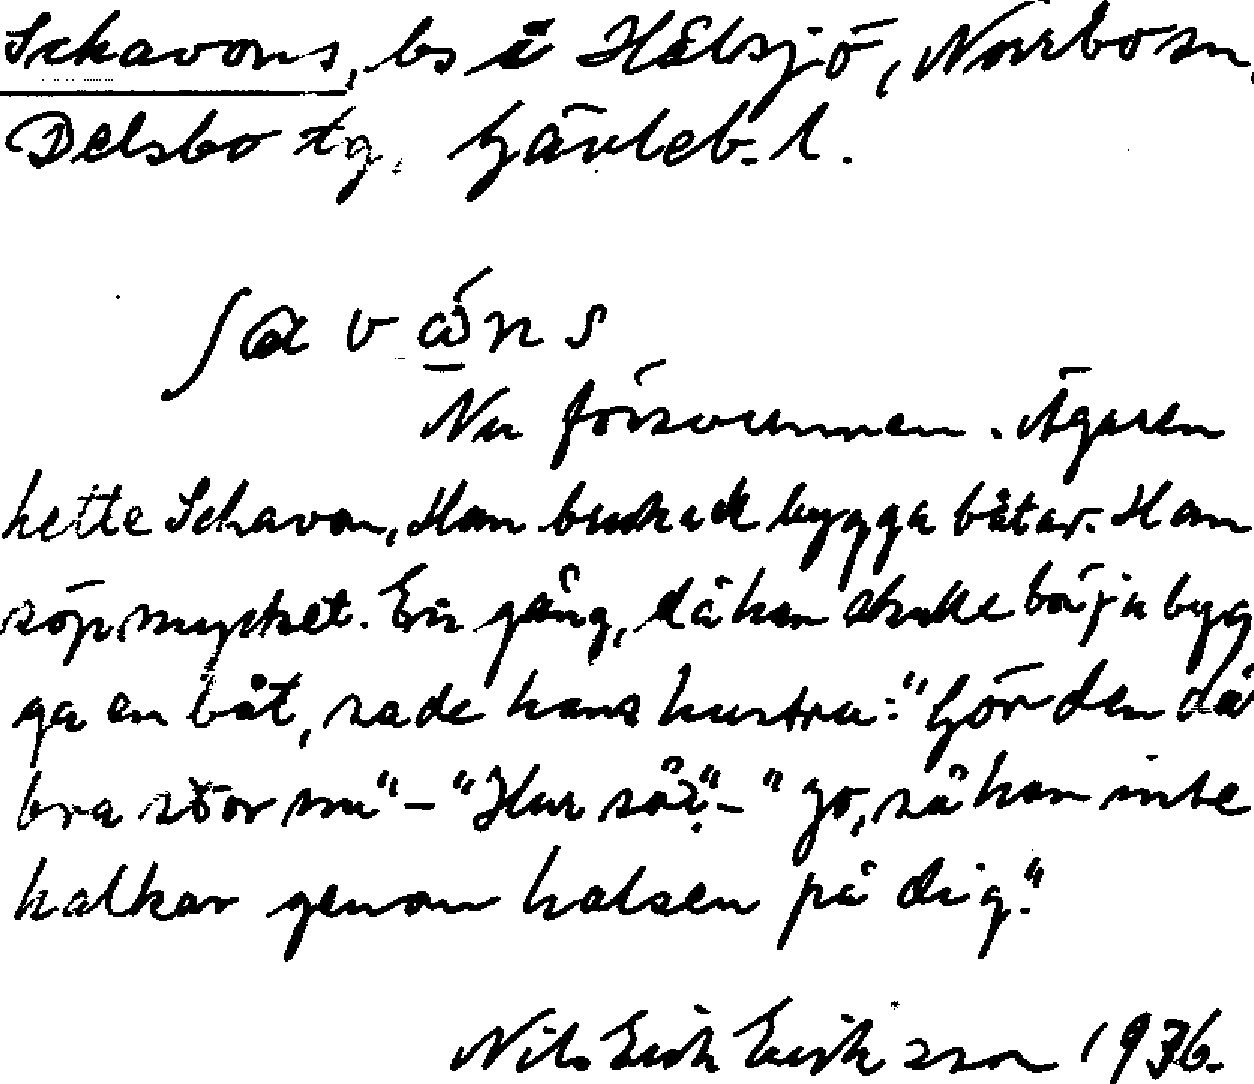 Schavons, bs i Hålsjö, Norrbo sn,
Delsbo tg, Gävleb. l.
ʃavώns
Nu försvunnen. Ägaren
hette Schavon, Han brukade bygga båtar. Han
söp mycket. En gång, då han skulle börja byg
ga en båt, sade hans hustru: "Gör den då
bra stor nu" – "Hur så?" – "Jo, så han inte
halkar genom halsen på dig."
Nils Erik Eriksson 1936.